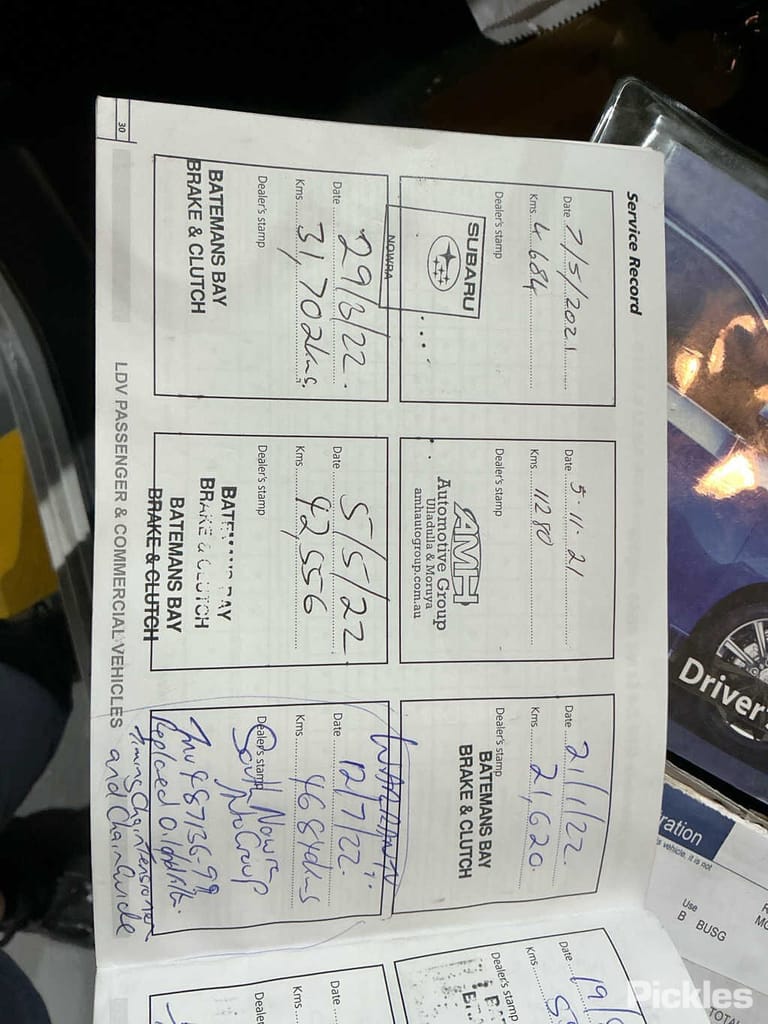 Service Record
Date 7/5/2021
Kms 4684
Dealer's stamp
SUBARU
NOWRA
Date 5.11.21
Kms 11280
Dealer's stamp
AMH
Automotive Group
Ulladulla & Moruya
amhautogroup.com.au
Date 21/1/22.
Kms 21,620.
Dealer's stamp
BATEMANS BAY
BRAKE & CLUTCH
Date 29/3/22.
Kms 31,702kms.
Dealer's stamp
BATEMANS BAY
BRAKE & CLUTCH
Date 5/5/22
Kms 42,556
Dealer's stamp
BATEMANS BAY
BRAKE & CLUTCH
BATEMANS BAY
BRAKE & CLUTCH
WARRANTY
Date 12/7/22.
Kms 4684kms
Dealer's stamp
South Nowra
Group
Inv 487136-99
Replaced Oil
Timing Chain Tensioner
and Chain Guide
30
LDV PASSENGER & COMMERCIAL VEHICLES
Date 19/
Kms
Dealer's stamp
Date
Kms
Dealer
Driver's
ration
s vehicle. It is not
Use
B BUSG
TOTAL
Pickles